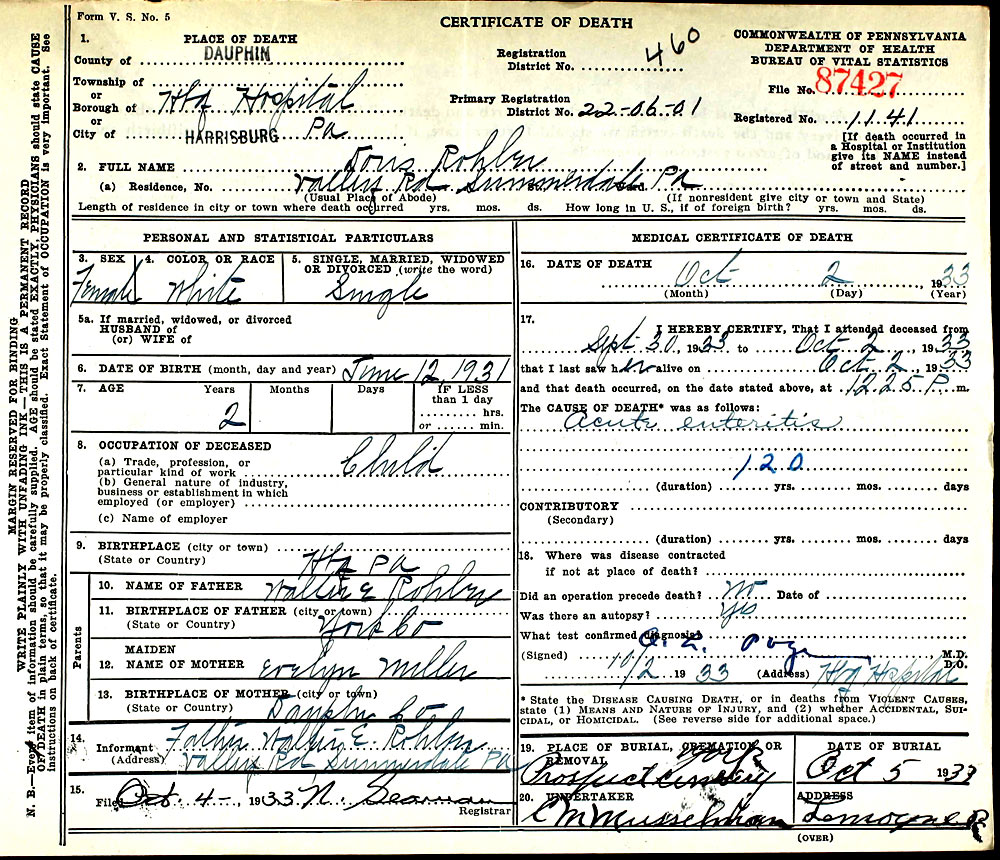 Form V. S. No. 5
CERTIFICATE OF DEATH
COMMONWEALTH OF PENNSYLVANIA
DEPARTMENT OF HEALTH
BUREAU OF VITAL STATISTICS
1. PLACE OF DEATH
County of DAUPHIN
Registration District No. 460
File No. 87427
Township of
or
Borough of Hbg Hospital
or
City of HARRISBURG Pa
Primary Registration District No. 22-06-01
Registered No. 1141
[If death occurred in a Hospital or Institution give its NAME instead of street and number.]
2. FULL NAME Doris Rohler
(a) Residence, No. Valley Rd Summerdale Pa
(Usual Place of Abode) (If nonresident give city or town and State)
Length of residence in city or town where death occurred yrs. mos. ds. How long in U. S., if of foreign birth? yrs. mos. ds.
PERSONAL AND STATISTICAL PARTICULARS
3. SEX Female
4. COLOR OR RACE White
5. SINGLE, MARRIED, WIDOWED OR DIVORCED (write the word) Single
5a. If married, widowed, or divorced
HUSBAND of
(or) WIFE of
6. DATE OF BIRTH (month, day and year) June 12, 1931
7. AGE Years 2 Months Days IF LESS than 1 day hrs. or min.
8. OCCUPATION OF DECEASED
(a) Trade, profession, or particular kind of work Child
(b) General nature of industry, business or establishment in which employed (or employer)
(c) Name of employer
9. BIRTHPLACE (city or town)
(State or Country) Hbg Pa
Parents
10. NAME OF FATHER Walter E Rohler
11. BIRTHPLACE OF FATHER (city or town)
(State or Country) York Co
12. MAIDEN NAME OF MOTHER Evelyn Miller
13. BIRTHPLACE OF MOTHER (city or town)
(State or Country) Dauphin Co
14. Informant Father Walter E. Rohler
(Address) Valley Rd, Summerdale Pa
15. Filed Oct. 4-, 1933 N. Seaman
Registrar
MEDICAL CERTIFICATE OF DEATH
16. DATE OF DEATH Oct 2, 1933
(Month) (Day) (Year)
17. I HEREBY CERTIFY, That I attended deceased from
Sept 30, 1933 to Oct 2, 1933
that I last saw her alive on Oct 2, 1933
and that death occurred, on the date stated above, at 12 25 P. m.
The CAUSE OF DEATH* was as follows:
Acute enteritis
120
(duration) yrs. mos. days
CONTRIBUTORY
(Secondary)
(duration) yrs. mos. days
18. Where was disease contracted
if not at place of death?
Did an operation precede death? No Date of
Was there an autopsy? Yes
What test confirmed diagnosis?
(Signed) M.D. D.O.
10/2 1933 (Address) Hbg Hospital
* State the DISEASE CAUSING DEATH, or in deaths from VIOLENT CAUSES, state (1) MEANS AND NATURE OF INJURY, and (2) whether ACCIDENTAL, SUICIDAL, or HOMICIDAL. (See reverse side for additional space.)
19. PLACE OF BURIAL, CREMATION OR REMOVAL York
Prospect Cemetery
DATE OF BURIAL
Oct 5 1933
20. UNDERTAKER
C M Musselman
ADDRESS
Lemoyne
(OVER)
MARGIN RESERVED FOR BINDING
WRITE PLAINLY WITH UNFADING INK—THIS IS A PERMANENT RECORD
N. B.—Every item of information should be carefully supplied. AGE should be stated EXACTLY, PHYSICIANS should state CAUSE
OF DEATH in plain terms, so that it may be properly classified. Exact Statement of OCCUPATION is very important. See
instructions on back of certificate.